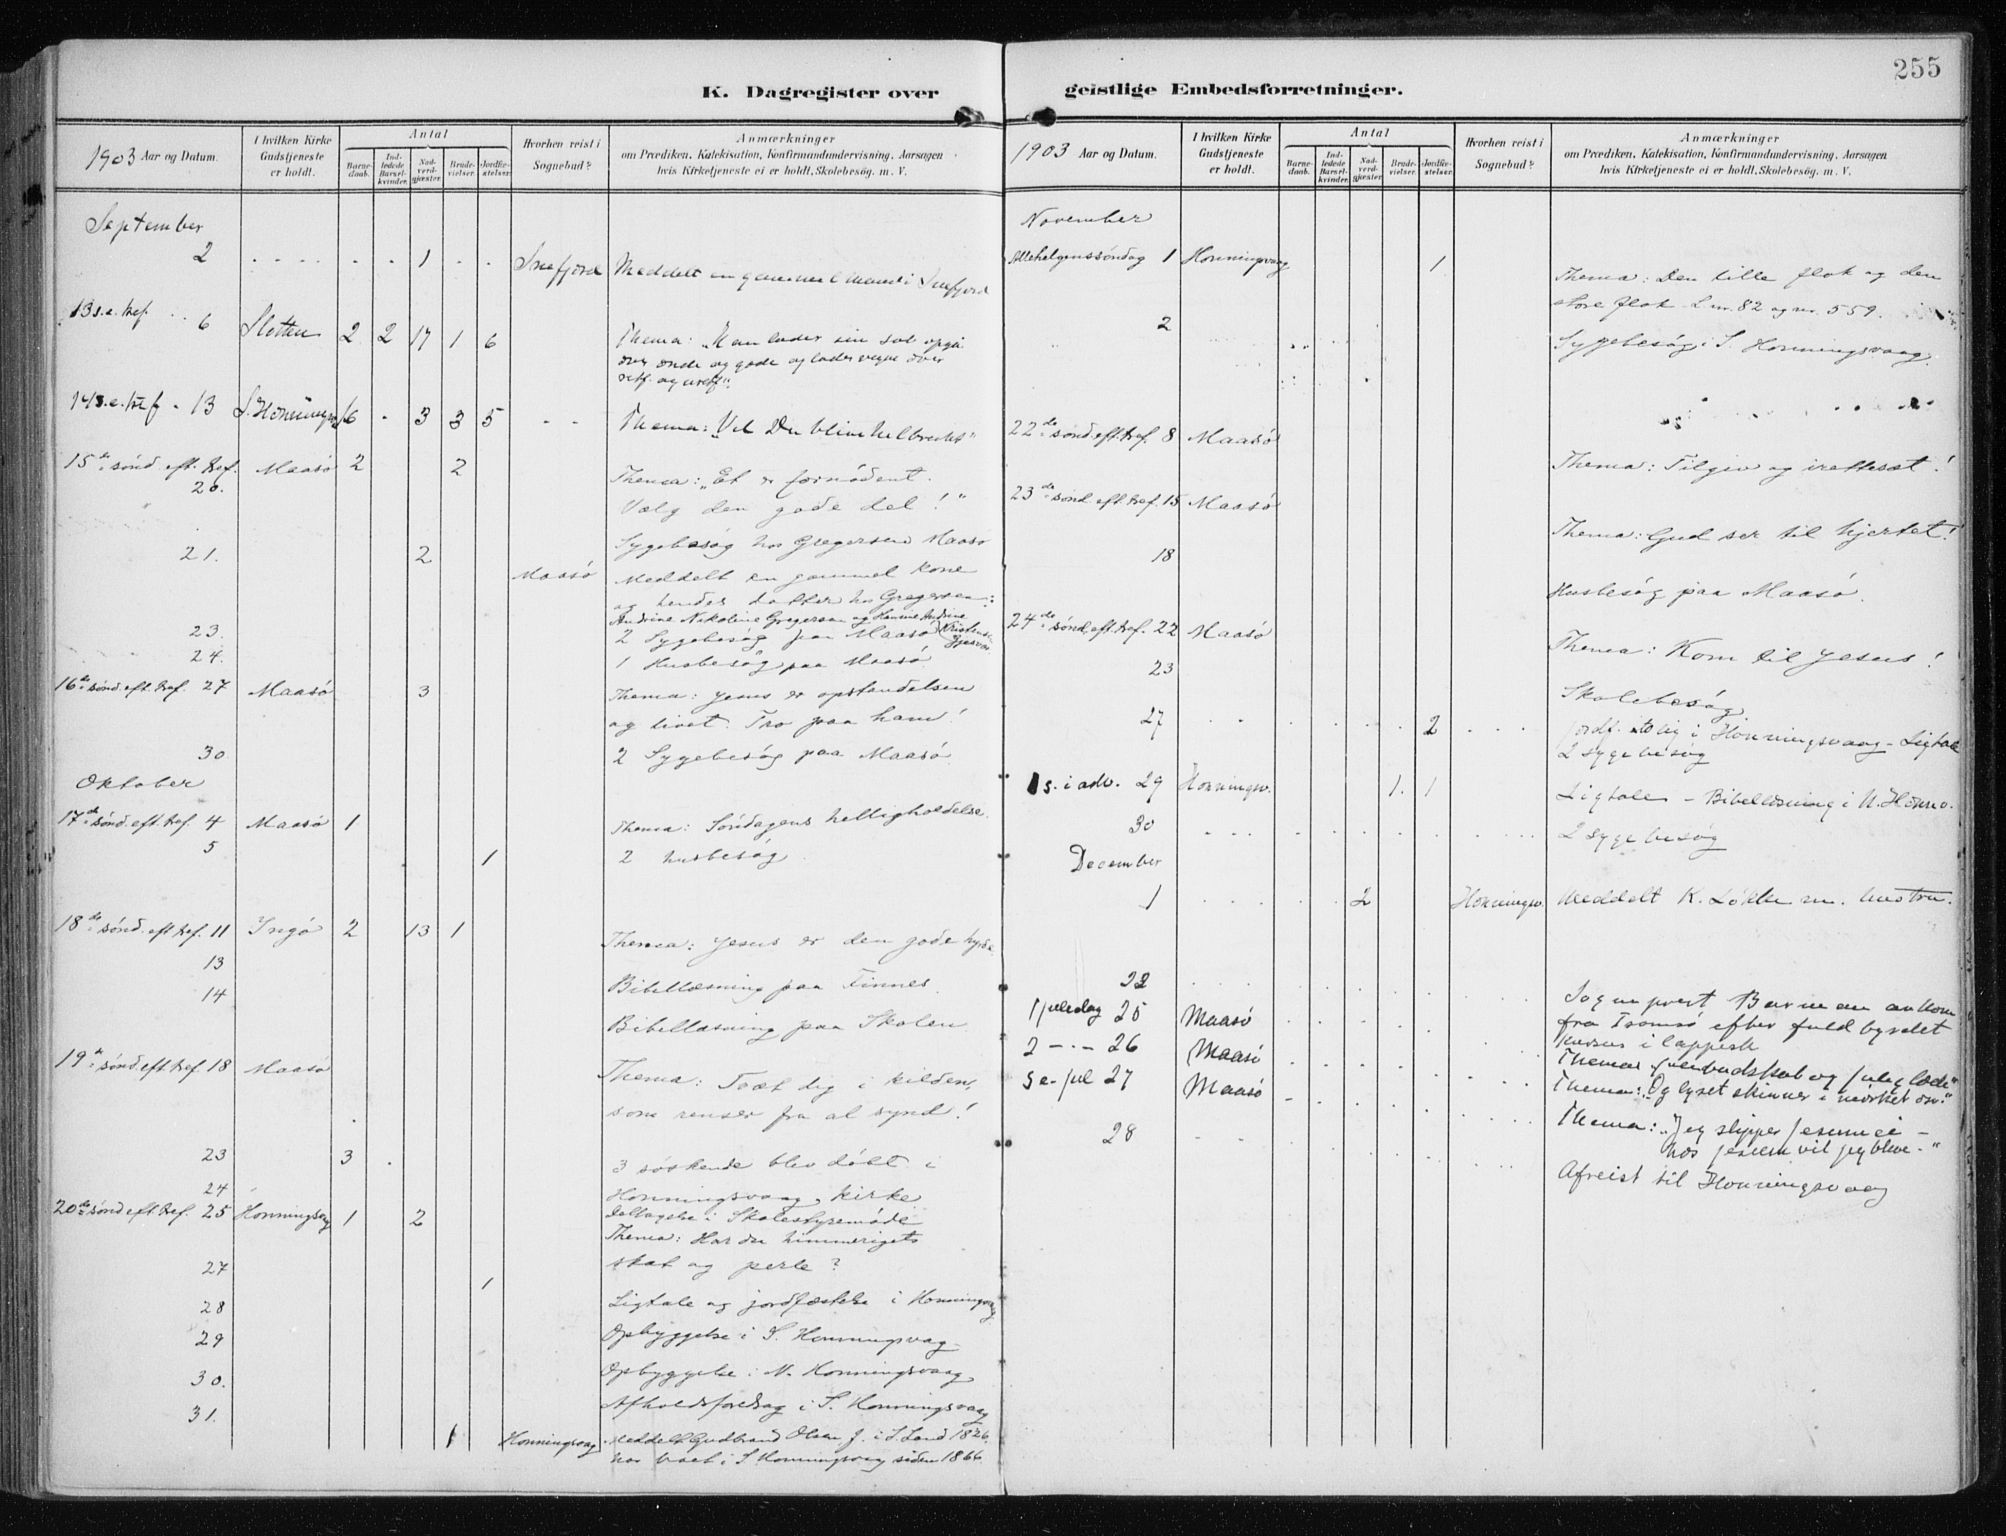 255
K. Dagregister over
geistlige Embedsforretninger.
1903 Aar og Datum.
I hvilken Kirke Gudstjeneste er holdt.
Antal
Barnedaab.
Indledede Barselkvinder.
Nadverdgjæster.
Brudevielser.
Jordfæstelser.
Hvorhen reist i Sognebud?
Anmærkninger
om Prædiken, Katekisation, Konfirmandundervisning, Aarsagen
hvis Kirketjeneste ei er holdt, Skolebesøg, m. V.
September
2 1 Snefjord Meddelt en gammel mand i Snefjord
13 s.e. tref. 6 Sletten 2 2 17 1 6 Thema: "Han lader sin sol opgå
over onde og gode og lader regne over
retf. og uretf."
14 s.e. tref. 13 S. Honningsv 6 3 3 5 Thema: "Vil Du blive helbredet"
15de sønd. eft. tref. 20. Maasø 2 2 Thema: "Et er fornødent.
Vælg den gode del!"
21. 2 Sygebesøg hos Gregersen Maasø
Maasø Meddelt en gammel kone
og hendes datter hos Gregersen:
Andrine Nikoline Gregersen og Andrine
23. 2 Sygebesøg paa Maasø
24. 1 Husbesøg paa Maasø
16de sønd. eft. tref. 27 Maasø 3 Thema: Jesus er opstandelsen
og livet. Tro paa ham!
30 2 Sygebesøg paa Maasø
Oktober
17de sønd. eft. tref. 4 Maasø 1 Thema: Søndagens helligholdelse.
5 1 2 husbesøg
18de sønd. eft. tref. 11 Ingø 2 13 1 Thema: Jesus er den gode hyrde
13 Bibellæsning paa Finnes
14 Bibellæsning paa Skolen
19de sønd. eft. tref. 18 Maasø Thema: Toæt dig i kilden,
som renser fra al synd!
23 3 3 søskende blev døbt i
24 Honningsvaag kirke
Deltagelse i Skolestyremøde
20de sønd. eft. tref. 25 Honningsvaag 1 2 Thema: Har du himmerigets
skat og perle?
27 1 Ligtale og jordfæstelse i Honningsvaag
28 Opbyggelse i S. Honningsvaag
29 Opbyggelse i N. Honningsvaag
30. Afholdsforedrag i S. Honningsvaag
31. 1 Honningsvaag Meddelt Gudbrand Olsen f. i S. Land 1826,
har boet i S Honningsvaag siden 1866
1903 Aar og Datum.
I hvilken Kirke Gudstjeneste er holdt.
Antal
Barnedaab.
Indledede Barselkvinder.
Nadverdgjæster.
Brudevielser.
Jordfæstelser.
Hvorhen reist i Sognebud?
Anmærkninger
om Prædiken, Katekisation, Konfirmandundervisning, Aarsagen
hvis Kirketjeneste ei er holdt, Skolebesøg, m. V.
November
Allehelgenssøndag 1 Honningsvaag 1 Thema: Den lille flok og den
store flok. L. nr. 82 og nr. 559.
2 Sygebesøg i S. Honningsvaag.
22de sønd. eft. tref. 8 Maasø Thema: Tilgiv og irettesæt!
23de sønd. eft. tref. 15 Maasø Thema: Gud ser til hjertet!
18 Husbesøg paa Maasø.
24de sønd. eft. tref. 22 Maasø Thema: Kom til Jesus!
23 Skolebesøg
27 2 Jordf. 2 lig i Honningsvaag - Ligtale
2 sygebesøg
1 s. i adv. 29 Honningsv. 1. 1 Ligtale - Bibellæsning i N. Honnv.
30 2 sygebesøg
December
1 2 Honningsv. Meddelt K. Løkke m. hustru.
22 Sogneprest ankom
fra Tromsø efter fuldbyrdet
kursus i lappisk
1 juledag 25 Maasø Thema: Julebudskab og juleglæde"
2 -"- 26 Maasø Thema: "Og lyset skinner i mørket osv."
S e. jul 27 Maasø Thema: "Jeg slipper Jesum ei -
hos Jesum vil jeg blive -"
28 Afreist til Honningsvaag